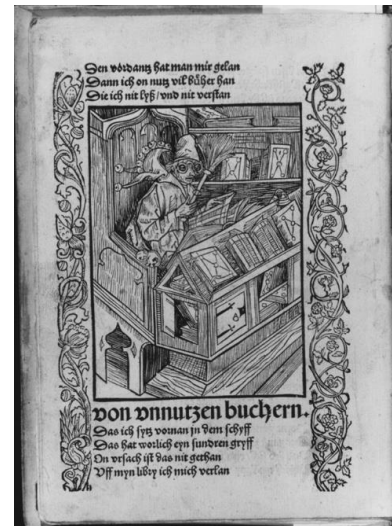 Den vordantz hat man mir gelan
Dann ich on nutz vil bůcher han
Die ich nit lyß / vnd nit verstan
von vnnutzen buchern.
Das ich sytz vornan jn dem schyff
Das hat worlich eyn sundren gryff
On vrsach ist das nit gethan
Vff myn libry ich mich verlan